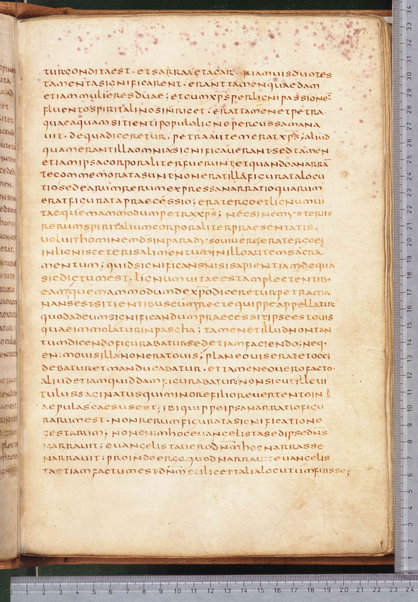 tur condita est. et sarra et acar. quamvis duo tes
tamenta significarent. erant tamen quaedam
etiam mulieres duae; et cum xps per ligni passionem
fluento spiritali nos inriget. erat tamen petra
quae aquam sitienti populo ligno percussa mana
vit. de qua diceretur. petra autem erat xps; aliud
quam erant illa omnia significaverunt. sed tamen
etiam ipsa corporaliter fuerunt. et quando a narran
te commemorata sunt non erat illa figurata locu
tio sed earum rerum expressa narratio quarum
erat figurata praecessio; erat ergo et lignum vi
tae quemammodum petra xps; nec sine mysteriis
rerum spiritalium corporaliter praesentatis.
voluit hominem ds in paradyso vivere; erat ergo ei
in lignis ceteris alimentum in illo autem sacra
mentum; quid significans nisi sapientiam de qua
sic dictum est. lignum vitae est amplectentib;
eam quemammodum de xpo diceretur petra ma
nans est sitientibus eum; recte quippe appellatur
quod ad eum significandum praecessit; ipse est ovis
quae immolatur in pascha; tamen et illud non tan
tum dicendo figurabatur sed etiam faciendo; neq;
enim ovis illa non erat ovis; plane ovis erat et occi
debatur et manducabatur. et tamen eo vero facto
aliud etiam quiddam figurabatur; non sicut ille vi
tulus saginatus qui minore filio revertente in
aepulas caesus est; ibi quippe ipsa narratio figu
rarum est. non rerum figurata significatione
gestarum; non enim hoc evangelista sed ipse dns
narravit; evangelista vero dnm hoc narrasse
narravit; proinde ergo quod narrat evangelis
ta etiam factum est dnm scilicet talia locutum fuisse;